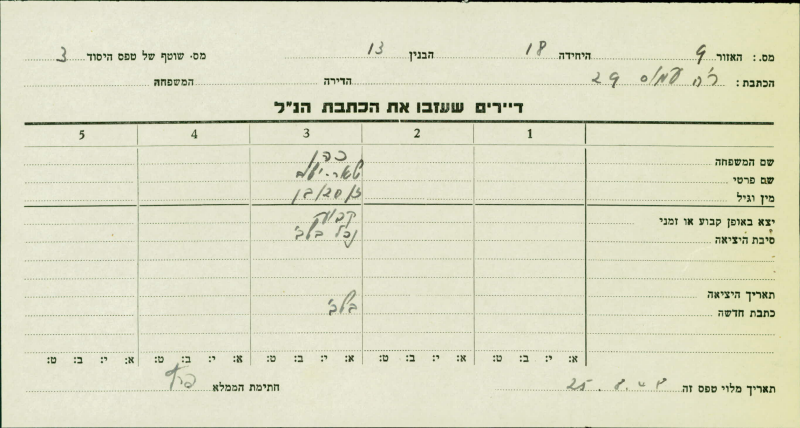 מס.: האזור 9 היחידה 18 הבנין 13 מס. שוטף של טפס היסוד 3
הכתבת: רח' עמוס 29 הדירה המשפחה
דיירים שעזבו את הכתבת הנ"ל
1 2 3 4 5
שם המשפחה כהן
שם פרטי
מין וגיל
יצא באופן קבוע או זמני קבוע
סיבת היציאה
תאריך היציאה
כתבת חדשה
א: י: ב: ט: א: י: ב: ט: א: י: ב: ט: א: י: ב: ט: א: י: ב: ט:
תאריך מלוי טפס זה 25.8.48 חתימת הממלא